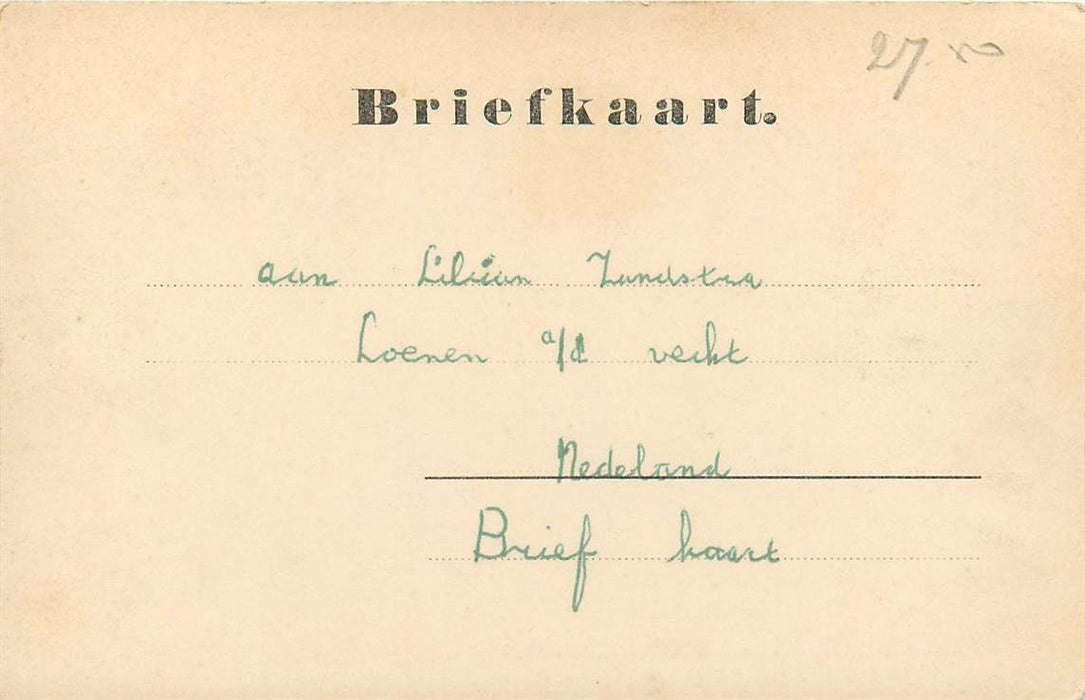 27.50
Briefkaart.
aan Lilian Zandstra
Loenen a/d vecht
Nedeland
Brief kaart